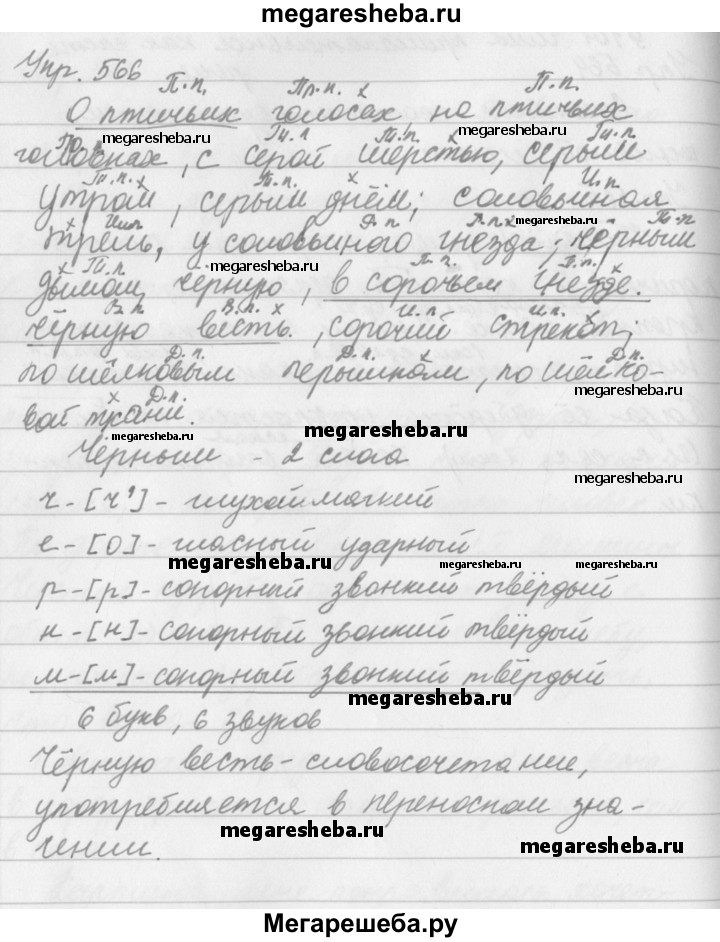 megaresheba.ru
Упр. 566
П.п. Пр.п. х П.п.
О птичьих голосах на птичьих
megaresheba.ru megaresheba.ru
головках, с серой шерстью, серым
Т.п. х Т.п. х И.п.
утром, серым днём; соловьиная
megaresheba.ru
трель, у соловьиного гнезда; чёрным
megaresheba.ru
дымом, чёрную, в сорочьем гнезде.
В.п. В.п. х И.п. И.п.
чёрную весть, сорочий стрекот;
Д.п. Д.п. х Д.п.
по шёлковым пёрышкам, по шёлко-
megaresheba.ru
х Д.п.
вой ткани.
megaresheba.ru megaresheba.ru megaresheba.ru
Чёрным - 2 слога
ч-[ч']-глухой мягкий
е-[о]-гласный ударный
megaresheba.ru megaresheba.ru megaresheba.ru
р-[р]-сонорный звонкий твёрдый
н-[н]-сонорный звонкий твёрдый
м-[м]-сонорный звонкий твёрдый
megaresheba.ru
6 букв, 6 звуков
Чёрную весть-словосочетание,
употребляется в переносном зна-
megaresheba.ru megaresheba.ru
чении.
Мегарешеба.ру